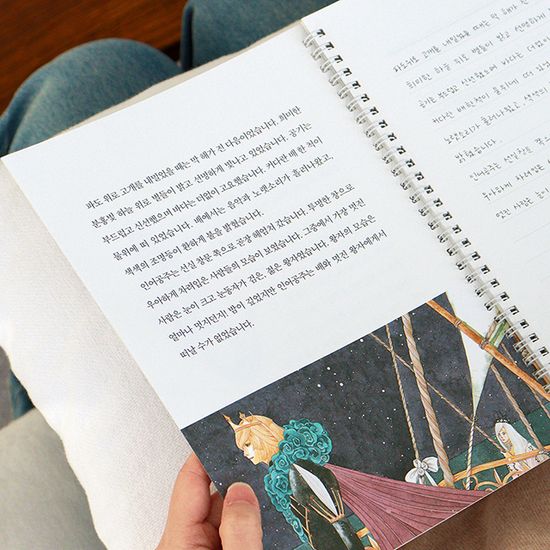 파도 위로 고개를 내밀었을 때는 막 해가 진 다음이었습니다. 희미한
분홍빛 하늘 위로 별들이 밝고 선명하게 빛나고 있었습니다. 공기는
부드럽고 신선했으며 바다는 더없이 고요했습니다. 커다란 배 한 척이
물위에 떠 있었습니다. 배에서는 음악과 노랫소리가 흘러나왔고,
색색의 조명등이 환하게 불을 밝혔습니다.
인어공주는 선실 창문 쪽으로 곧장 헤엄쳐 갔습니다. 투명한 창으로
우아하게 차려입은 사람들의 모습이 보였습니다. 그중에서 가장 멋진
사람은 눈이 크고 눈동자가 검은, 젊은 왕자였습니다. 왕자의 모습은
얼마나 멋지던지! 밤이 깊었지만 인어공주는 배와 멋진 왕자에게서
떠날 수가 없었습니다.
파도위로 고개를 내밀었을 때는 막 해가 진
희미한 하늘 위로 별들이 밝고 선명하게
공기는 부드럽고 신선했으며 바다는 더없이
커다란 배 한척이 물위에 떠 있
노랫소리가 흘러나왔고,
밝혔습니다.
인어공주는 선실 창문 쪽
우아하게 차려입은 사
멋진 사람은 눈이